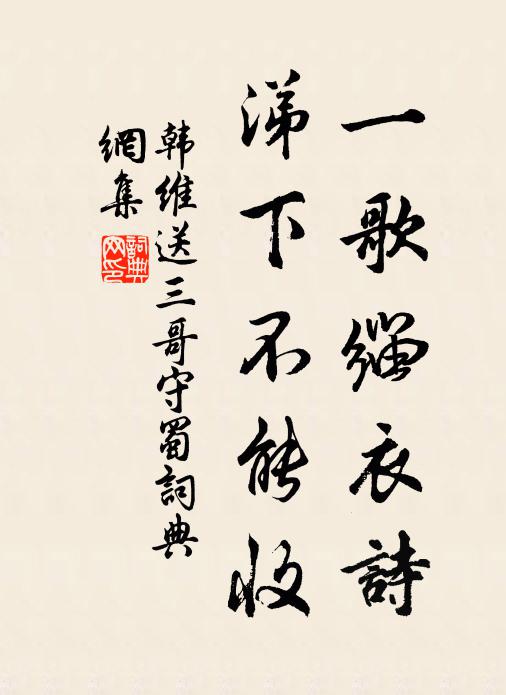 一歌缁衣詩
涕下不能收
韩维送三哥守蜀詞典
網集
詞典网印